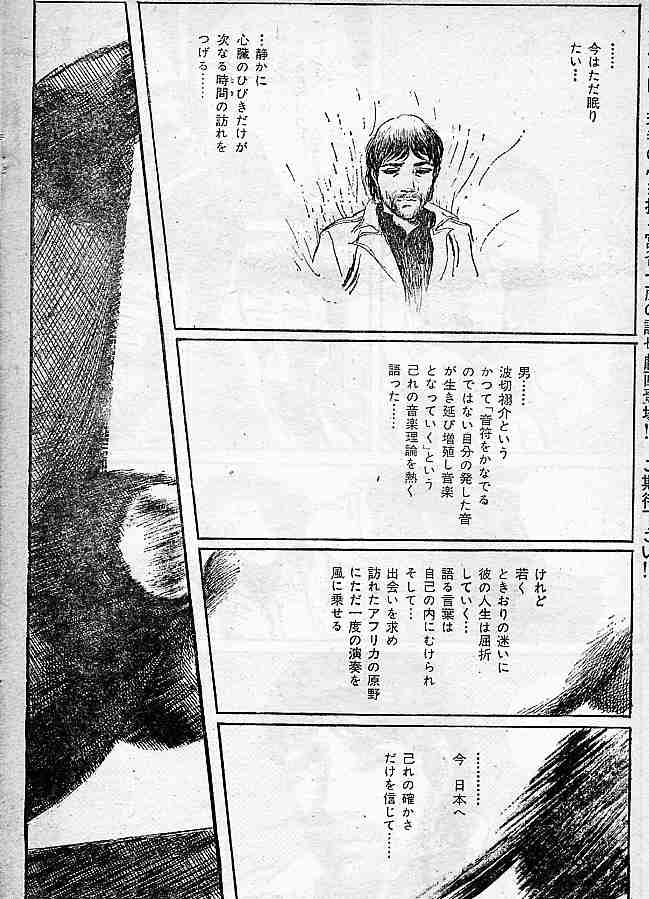 ………
今はただ眠り
たい…
…静かに
心臓のひびきだけが
次なる時間の訪れを
つげる……
男……
波切禤介という
かつて「音符をかなでる
のではない自分の発した音
が生き延び増殖し音楽
となっていく」という
己れの音楽理論を熱く
語った……
けれど
若く
ときおりの迷いに
彼の人生は屈折
していく…
語る言葉は
自己の内にむけられ
そして…
出会いを求め
訪れたアフリカの原野
にただ一度の演奏を
風に乗せる
…………
今 日本へ
己れの確かさ
だけを信じて……